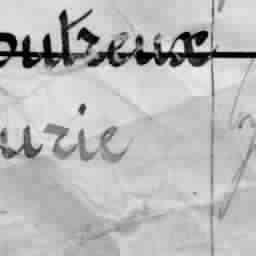 outreux
urie